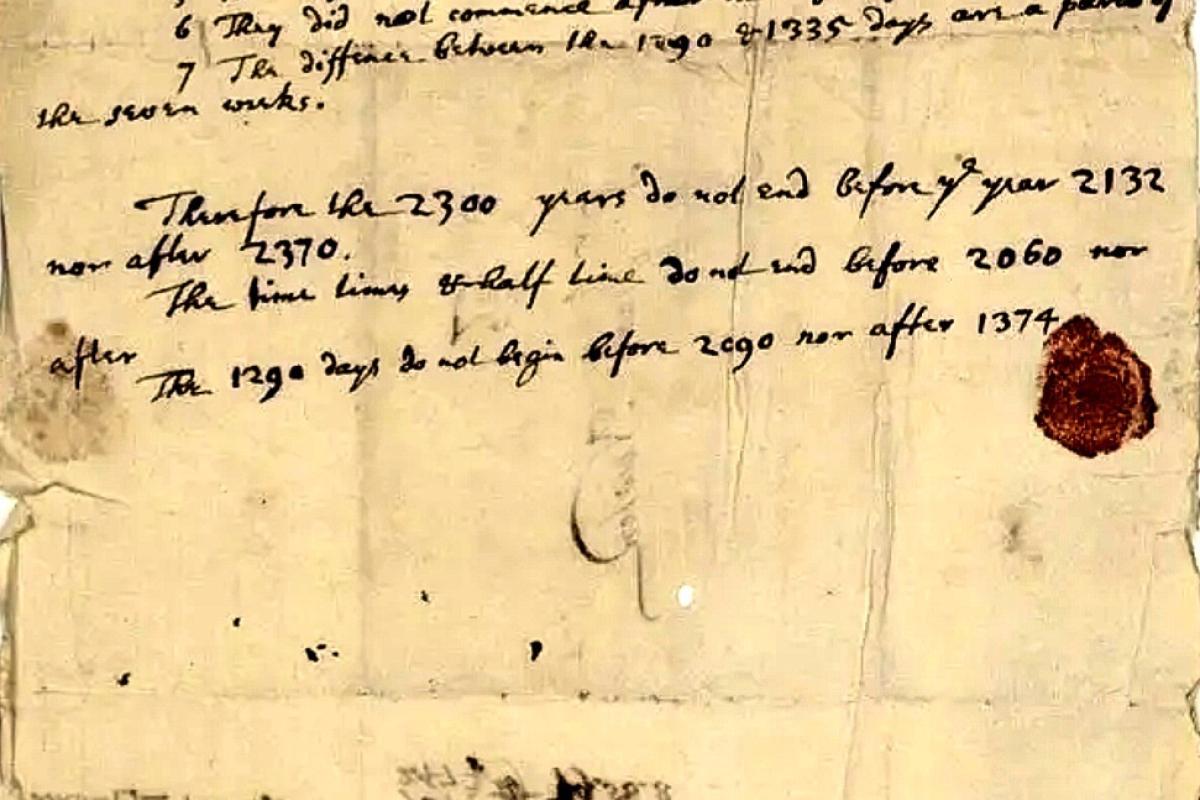 6 They did not commence after
7 The difference between the 1290 & 1335 days are a parts of
the seven weeks.
Therefore the 2300 years do not end before ye year 2132
nor after 2370.
The time times & half time do not end before 2060 nor
after
The 1290 days do not begin before 2090 nor after 1374